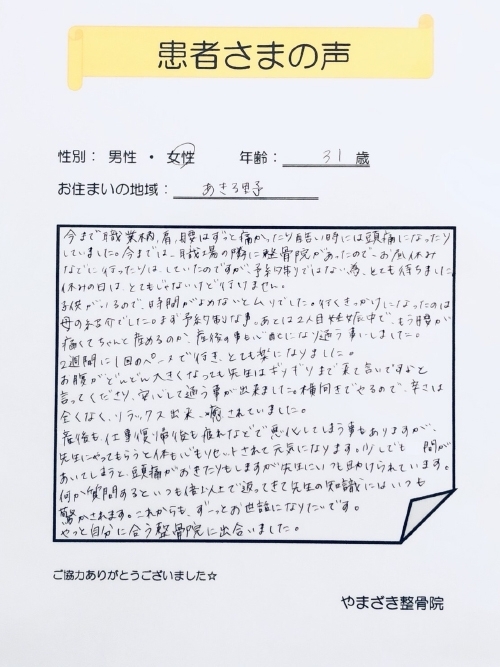 患者さまの声
性別： 男性 ・ 女性　　年齢： 31 歳
お住まいの地域： あきる野
今まで職業柄、肩、腰はずっと痛かったり酷い時には頭痛になったり
していました。今までは、職場の隣に整骨院があったので、お昼休み
などに行ったりはしていたのですが、予約制ではない為、とても待ちました
休みの日は、とてもじゃないけど行けません。
子供がいるので、時間がよめないとムリでした。行くきっかけになったのは
母のお紹介でした。まず予約制な事。あとは2人目妊娠中で、もう腰が
痛くてちゃんと産めるのか、産後の事も心配になり通う事にしました。
2週間に1回のペースで行き、とても楽になりました。
お腹がどんどん大きくなっても先生はギリギリまで来て言いですよと
言ってくださり、安心して通う事が出来ました。横向きでやるので、辛さは
全くなく、リラックス出来、癒されていました。
産後も、仕事復帰後も疲れなどで悪化してしまう事もありますが、
先生にやってもらうと体も心もリセットされて元気になります。少しでも 間が
あいてしまうと、頭痛がおきたりもしますが先生にいつも助けられています。
何か質問するといつも倍以上で返ってきて先生の知識にはいつも
驚かされます。これからも、ずっとお世話になりたいです。
やっと自分に合う整骨院に出合いました。
ご協力ありがとうございました☆
やまざき整骨院